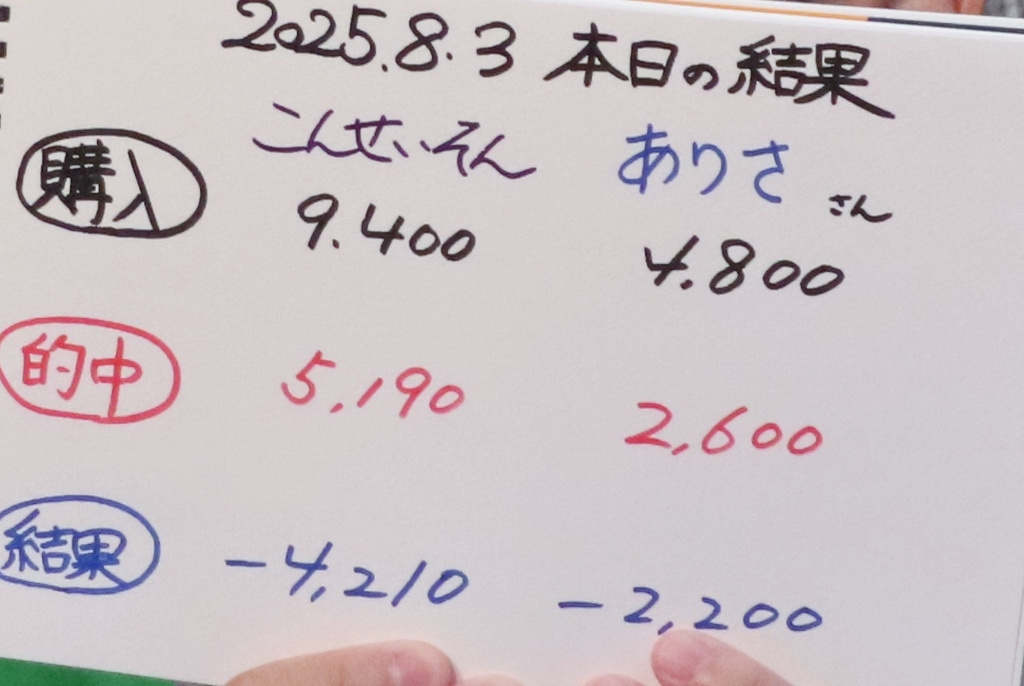 2025.8.3 本日の結果
こんせいそん ありささん
購入 9.400 4.800
的中 5,190 2,600
結果 -4,210 -2,200